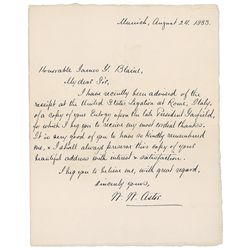 Munich, August 24. 1883.
Honorable James G. Blaine,
My dear Sir,
I have recently been advised of the
receipt at the United States Legation at Rome, Italy,
of a copy of your Eulogy upon the late President Garfield,
for which I beg you to receive my most cordial thanks.
It is very good of you to have so kindly remembered
me, & I shall always preserve this copy of your
beautiful address with interest & satisfaction.
I beg you to believe me, with great regard,
Sincerely yours,
W. W. Astor